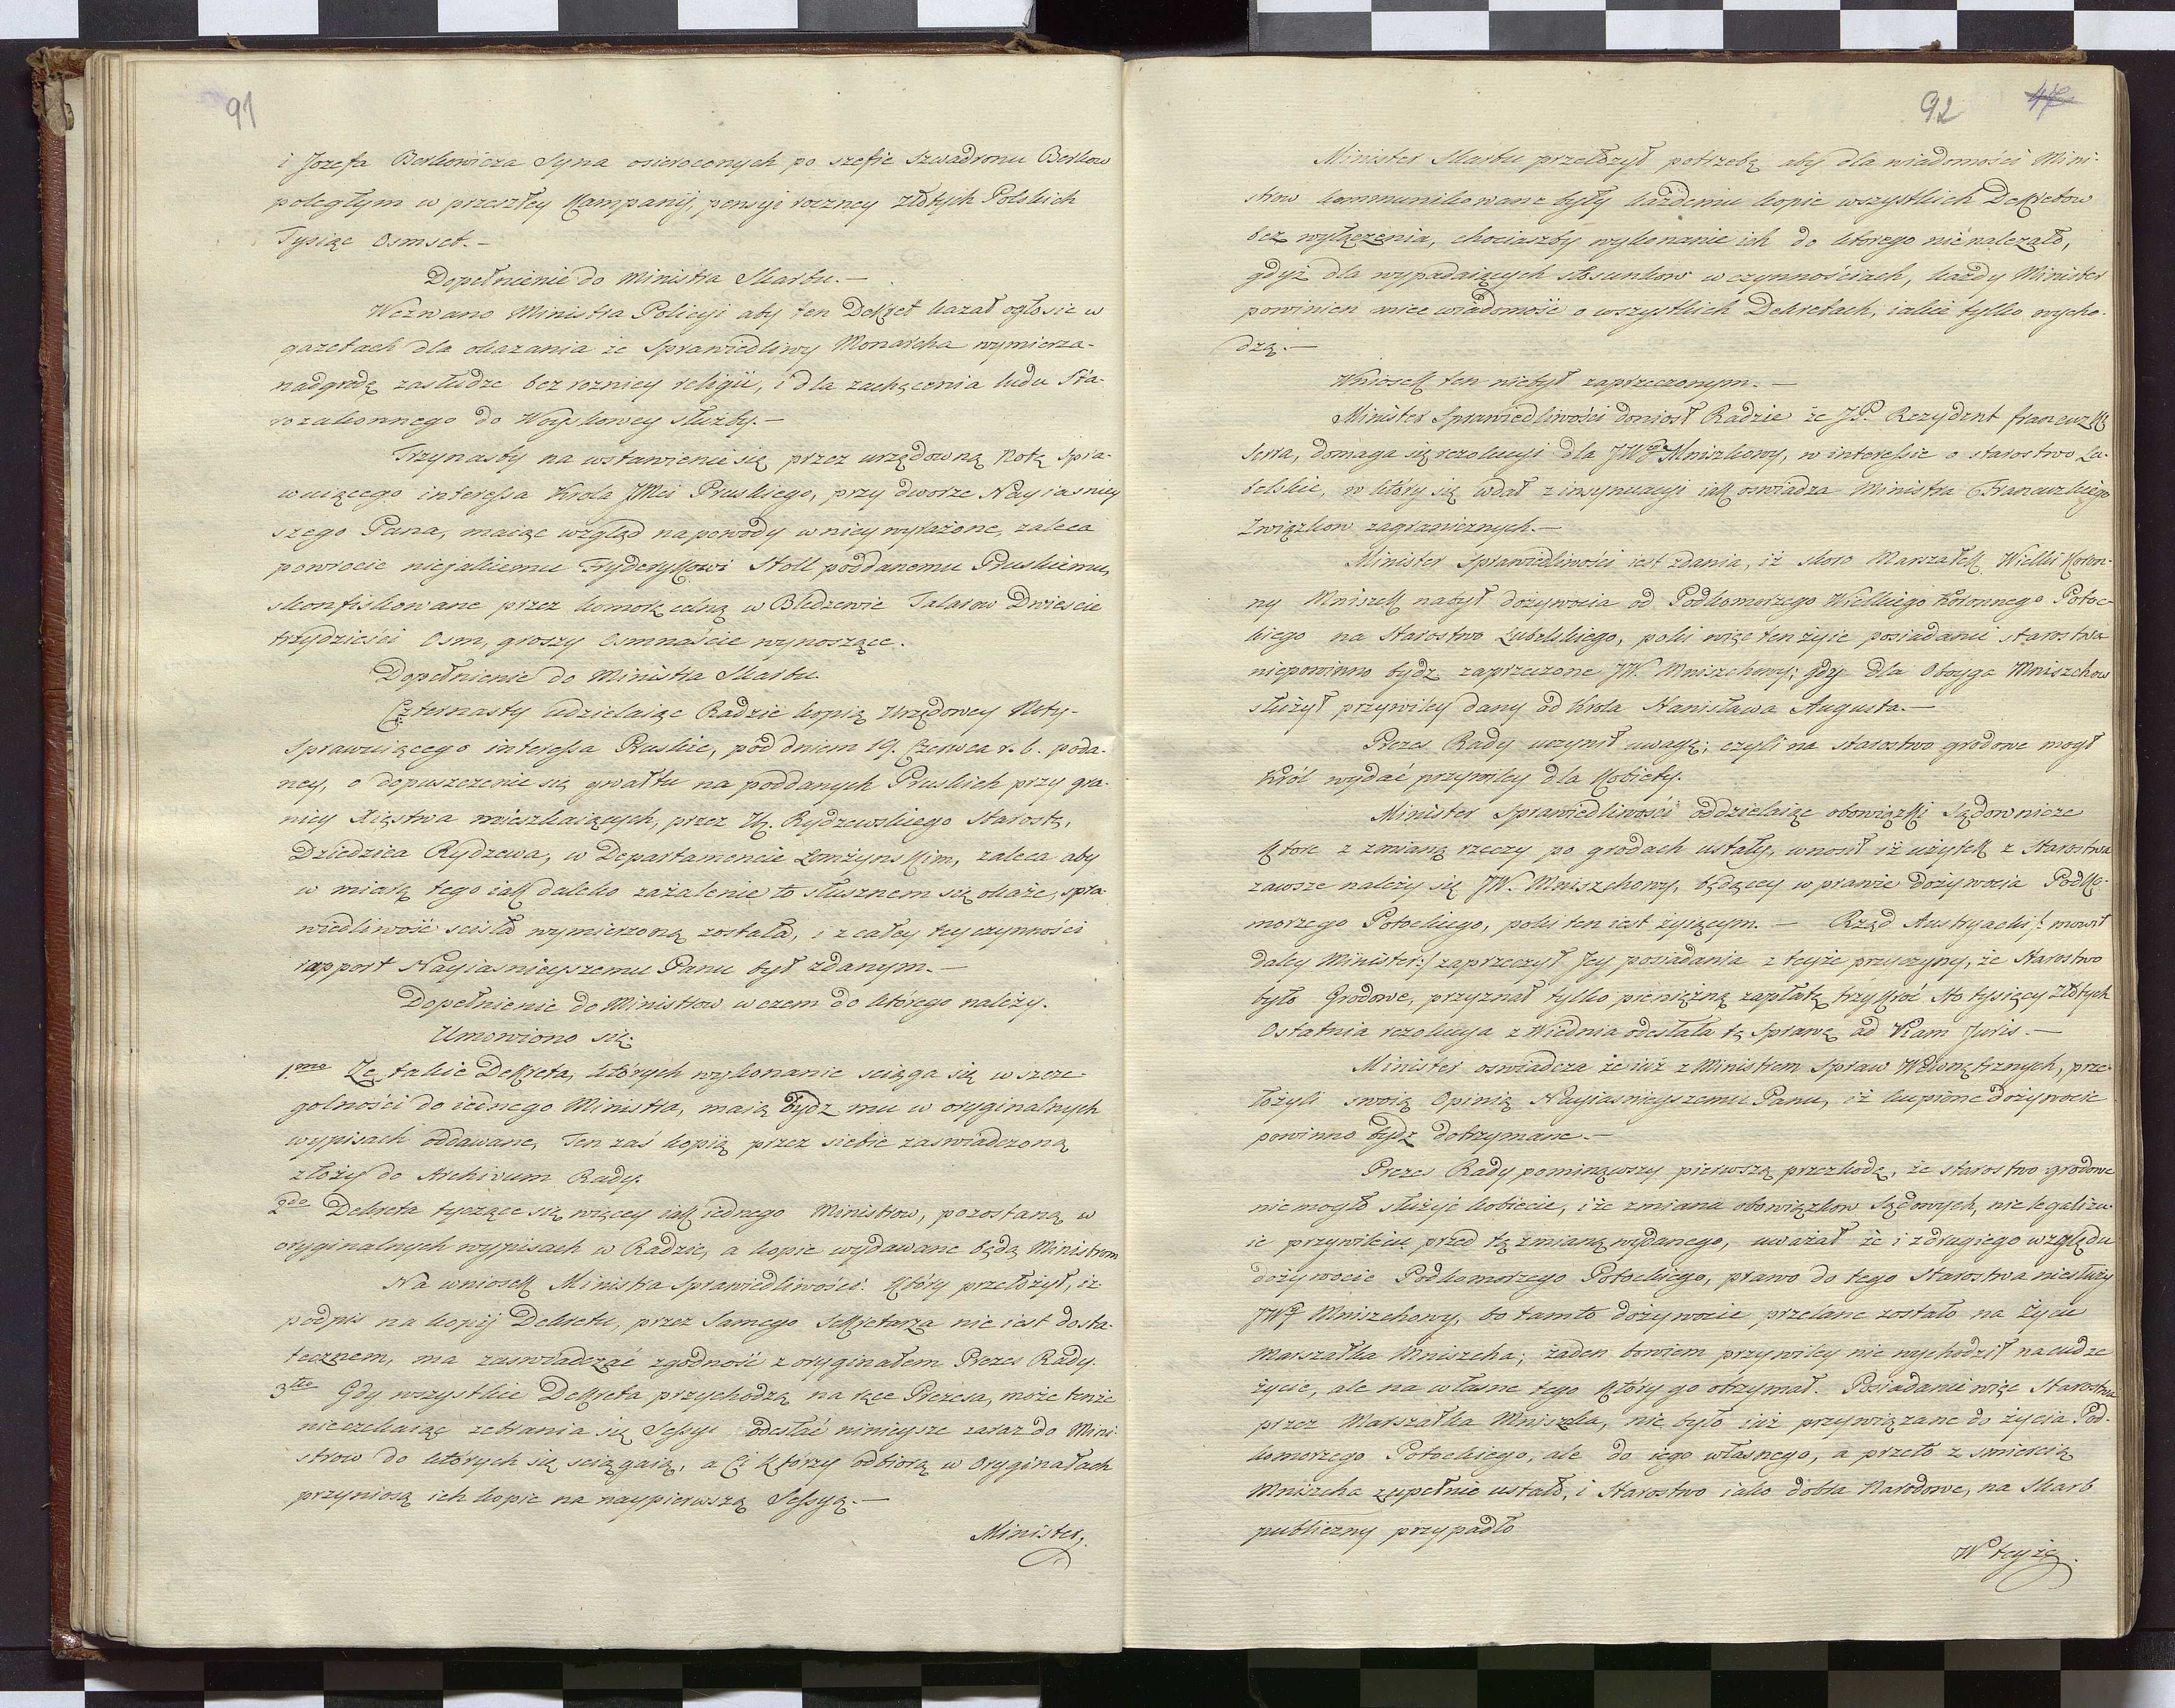 91
i Jozefa Berkowicza Syna osieroconych po szefie szwadronu Berkow
poległym w przeszłey Kampanij, pensyi roczney złotych Polskich
Tysiąc Osmset.-
Dopełnienie do Ministra Skarbu.-
Wezwano Ministra Policyi aby ten Dekret kazał ogłosic w
gazetach dla okazania że Sprawiedliwy Monarcha wymierza-
nadgrodę zasłudze bez roznicy religii, i dla zachęcenia ludu Sta-
rozakonnego do Woyskowey służby.-
Trzynasty na wstawienie się przez urzędowną Notę spra-
wuiącego interessa Krola JMci Pruskiego, przy dworze Nayiasniey
szego Pana, maiąc wzgląd na powody w niey wyrażone, zaleca
powrocic niejakiemu Fryderykowi Stoll poddanemu Pruskiemu,
skonfiskowane przez komorę celną w Bledzewie Talarow Dwieście
trzydzieści Osm, groszy Osmnaście wynoszące.
Dopełnienie do Ministra Skarbu.
Czternasty udzielaiąc Radzie kopią Urzędowey Noty-
Sprawuiącego interessa Pruskie, pod dniem 19. Czerwca r. b. poda-
ney, o dopuszczenie się gwałtu na poddanych Pruskich przy gra-
nicy Xięstwa mieszkaiących, przez Ur. Rydzewskiego Starostę,
Dziedzica Rydzewa, w Departamencie Łomżynskim, zaleca aby
w miarę tego iak daleko zażalenie to słusznem się okaże, spra-
wiedliwość scisła wymierzoną została, i z całey tey czynności
rapport Nayiasnieyszemu Panu był zdanym.-
Dopełnienie do Ministrow w czem do którego należy.
Umowiono się.
1.mo Że takie Dekreta, których wykonanie sciąga się w szcze-
golności do iednego Ministra, maią bydz mu w oryginalnych
wypisach oddawane, Ten zaś kopią przez siebie zaswiadczoną
złoży do Archivum Rady.
2do Dekreta tyczące się więcey iak iednego Ministrow, pozostaną w
oryginalnych wypisach w Radzie, a kopie wydawane będą Ministrom
Na wniosek Ministra Sprawiedliwości. Który przełożył, iż
podpis na kopij Dekretu, przez Samego Sekretarza nie iest dosta-
tecznem, ma zaswiadczać zgodność z oryginałem Prezes Rady.
3tio Gdy wszystkie Dekreta przychodzą na ręce Prezesa, może tenże
nieczekaiąc zebrania się Sessyi odesłać ninieysze zaraz do Mini-
strow do których się sciągaią, a Ci którzy odbiorą w Oryginałach
przyniosą ich kopie na naypierwszą Sessyą.-
Minister,
92 47
Minister Skarbu przełożył potrzebę aby dla wiadomości Mini-
strow kommunikowane były każdemu kopie wszystkich Dekretow
bez wyłączenia, chociaszby wykonanie ich do ktorego nienależało,
gdyż dla wypadaiących stosunkow w czynnościach, każdy Minister
powinien miec wiadomość o wszystkich Dekretach, iakie tylko wycho-
dzą.-
Wniosek ten niebył zaprzeczonym.-
Minister Sprawiedliwości doniosł Radzie że JP. Rezydent francuzki
Serra, domaga się rezolucyi dla JW Mniszkowy, w interessie o starostwo Lu-
belskie, w który się wdał z insynuacyi iak oswiadza Ministra Francuzkiego
Związkow zagranicznych.-
Minister Sprawiedliwości iest zdania, iż skoro Marszałek Wielki Koron-
ny Mniszek nabył dożywocia od Podkomorzego Wielkiego Koronnego Potoc-
kiego na Starostwo Lubelskiego, poki więc ten żyie posiadanie starostwa
niepowinno bydz zaprzeczone JW. Mniszchowy; gdy dla Oboyga Mniszchow
służył przywiley dany od Krola Stanisława Augusta.-
Prezes Rady uczynił uwagę; czyli na starostwo grodowe mogł
Król wydać przywiley dla Kobiety.
Minister Sprawiedliwości oddzielaiąc obowiązki Sądownicze
które z zmianą rzeczy po grodach ustały, wnosił iż użytek z Starostwa
zawsze należy się JW. Mniszchowy, będącey w prawie dożywocia Podko-
morzego Potockiego, poki ten iest żyiącym.- Rząd Austryacki /: mowił
daley Minister:/ zaprzeczył Jey posiadania z teyże przyczyny, że Starostwo
było Grodowe, przyznał tylko pieniężną zapłatę trzykroć sto tysięcy Złotych
Ostatnia rezolucya z Wiednia odesłała tę Sprawę ad Viam Juris.-
Minister oswiadcza że iuż z Ministrem Spraw Wewnętrznych, prze-
łożyli swoią Opinią Nayiasnieyszemu Panu, iż kupione dożywocie
powinno bydz dotrzymane.-
Prezes Rady pominąwszy pierwszą przezkodę, że starostwo grodowe
nie mogło służyć kobiecie, i że zmiana obowiązkow Sądowych, nie legalizu-
ie przywileiu przed tą zmianą wydanego, uważał że i z drugiego względu
dożywocie Podkomorzego Potockiego, prawo do tego Starostwa niesłuży
JW Mniszchowy, bo tamto dożywocie przelane zostało na Życie
Marszałka Mniszcha; żaden bowiem przywiley nie wychodził na cudze
życie, ale na własne tego który go otrzymał. Posiadanie więc Starostwa
przez Marszałka Mniszcha, nie było iuż przywiązane do życia Pod-
komorzego Potockiego, ale do iego własnego, a przeto z smiercią
Mniszcha zupełnie ustało, i Starostwo iako dobra Narodowe, na Skarb
publiczny przypadło
W teyże